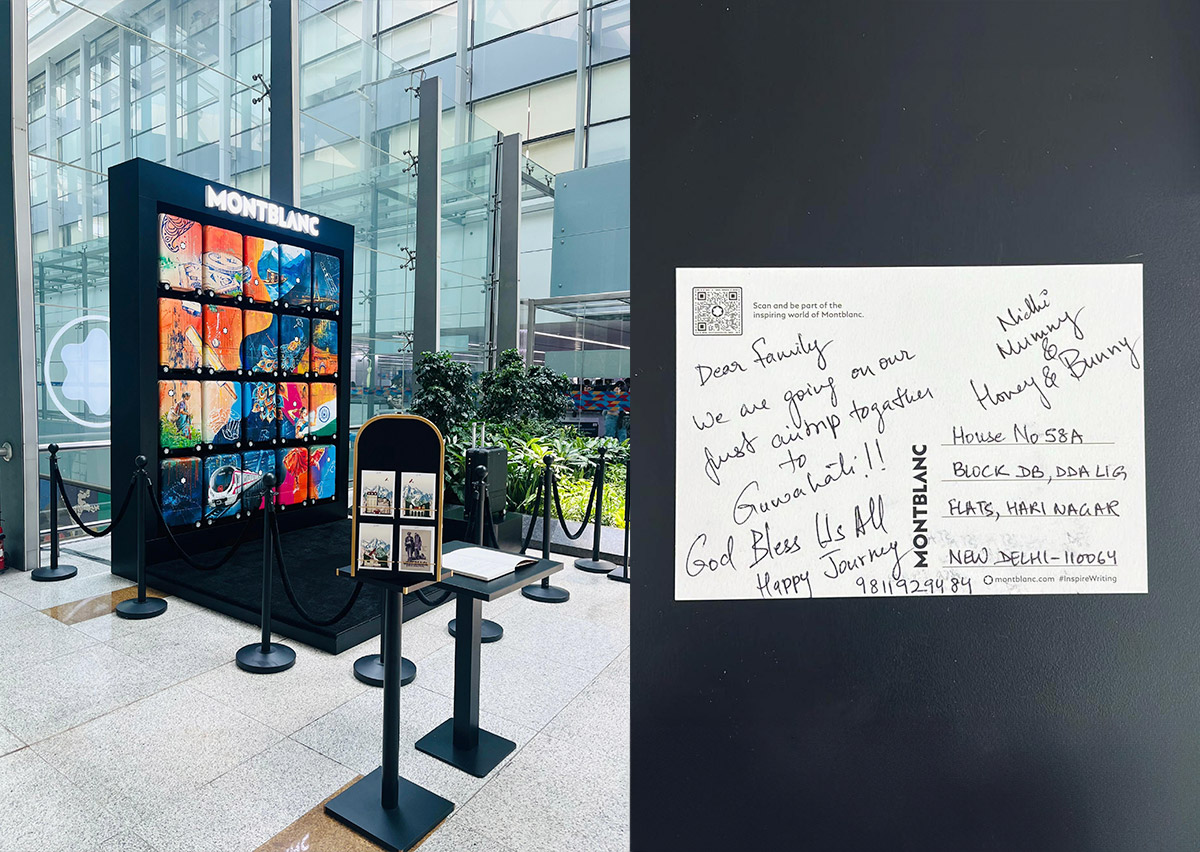 MONTBLANC
Scan and be part of the
inspiring world of Montblanc.
Dear Family
We are going on our
to
Guwahati!!
God Bless Us All
Happy Journey
9811929484
Nidhi
Mummy
&
Honey & Bunny
MONTBLANC
House No 58A
BLOCK DB, DDA LIG
FLATS, HARI NAGAR
NEW DELHI-110064
montblanc.com #InspireWriting